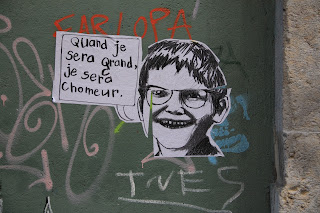 SARLOPA
Quand je
sera Grand,
je sera
chomeur.
INES